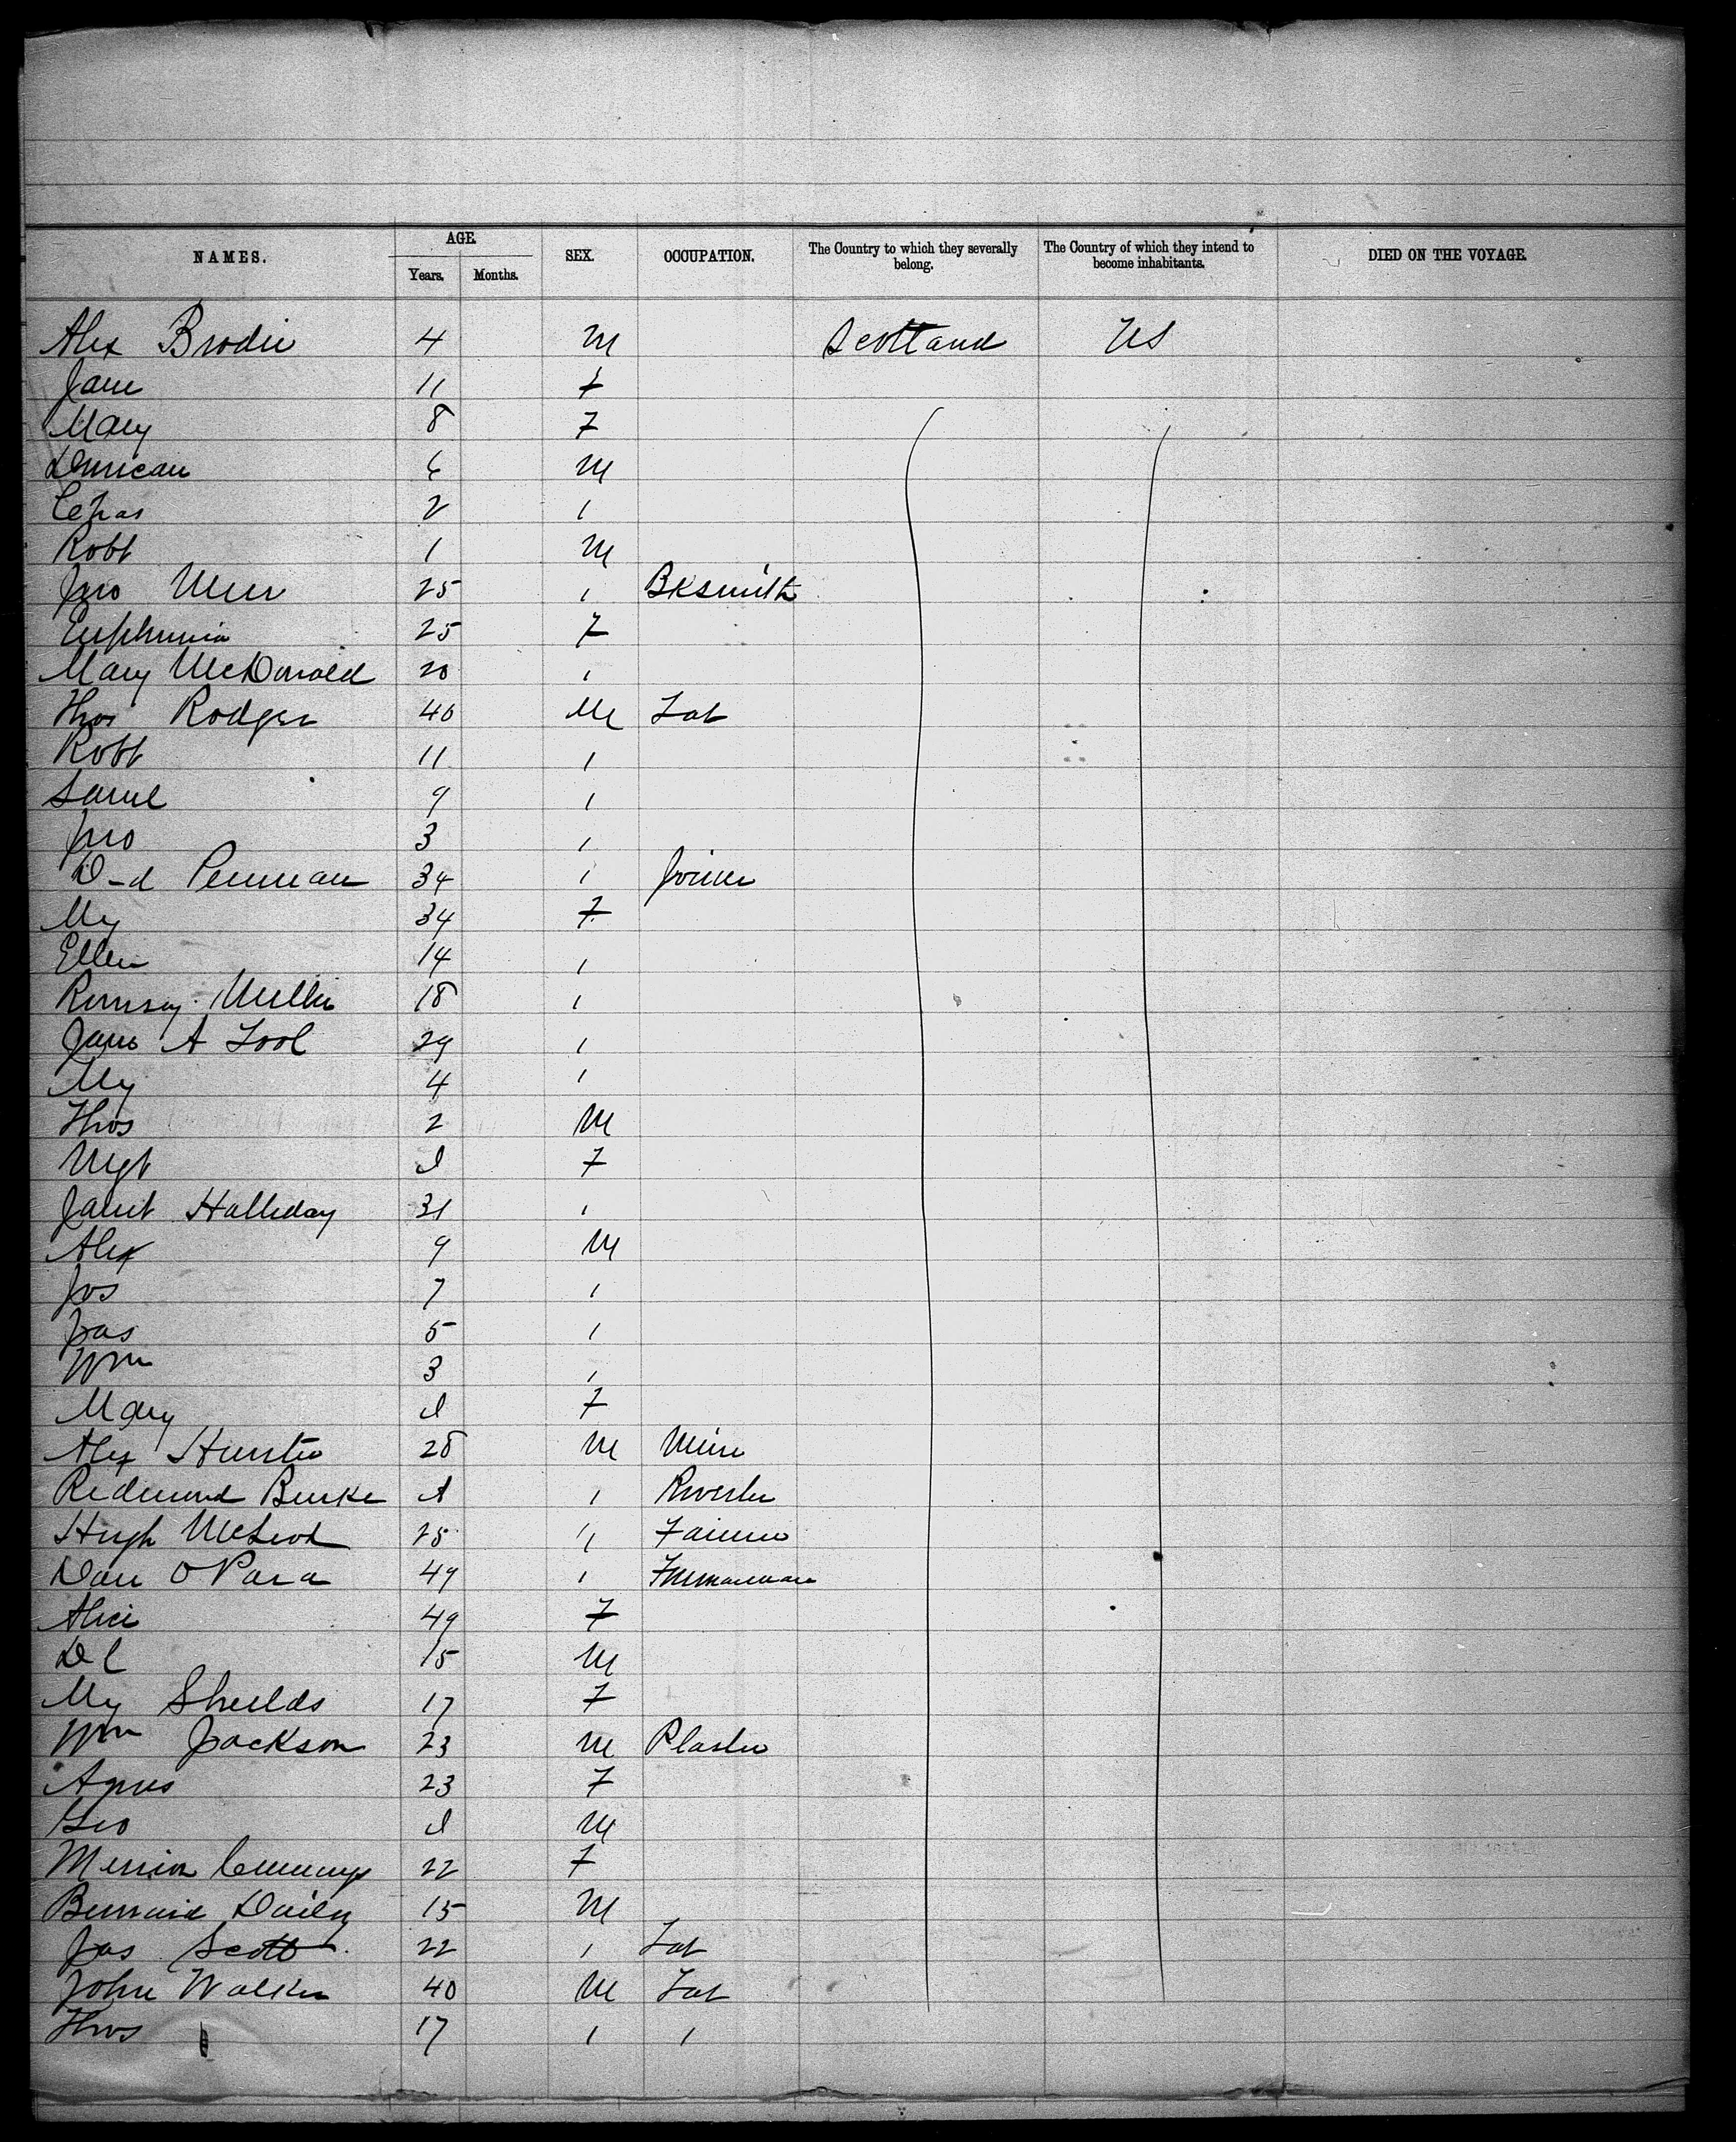 NAMES. AGE. SEX. OCCUPATION. The Country to which they severally belong. The Country of which they intend to become inhabitants. DIED ON THE VOYAGE.
Years. Months.
Alex Brodie 4 M Scotland US
Jane 11 F
Mary 8 F
Duncan 6 M
2 1
Robt 1 M
Jno Muir 25 1 Bksmith
Euphemia 25 F
Mary McDonald 20 1
Thos Rodger 40 M Lab
Robt 11 1
Saml 9 1
Jno 3 1
D-d Penman 34 1 Joiner
My 34 F
Ellen 14 1
Ramsay 18 1
Jane A 29 1
My 4 1
Thos 2 M
Mgt F
Janet Halliday 31 1
Alex 9 M
Jos 7 1
Jas 5 1
Wm 3 1
Mary F
Alex Hunter 28 M Miner
Redmond Burke A 1
Hugh McLeod 25 11 Farmer
Dan O'Para 49 1
Alice 49 F
Dl 15 M
My Shields 17 F
Wm Jackson 23 M Plaster
Agnes 23 F
Geo M
22 F
Bernard Daily 15 M
Jas Scott 22 1 Lab
John Walker 40 M Lab
Thos 17 1 1